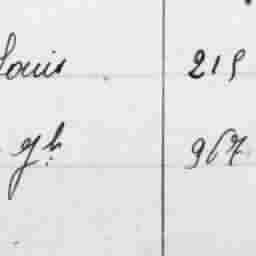 Louis 215
967